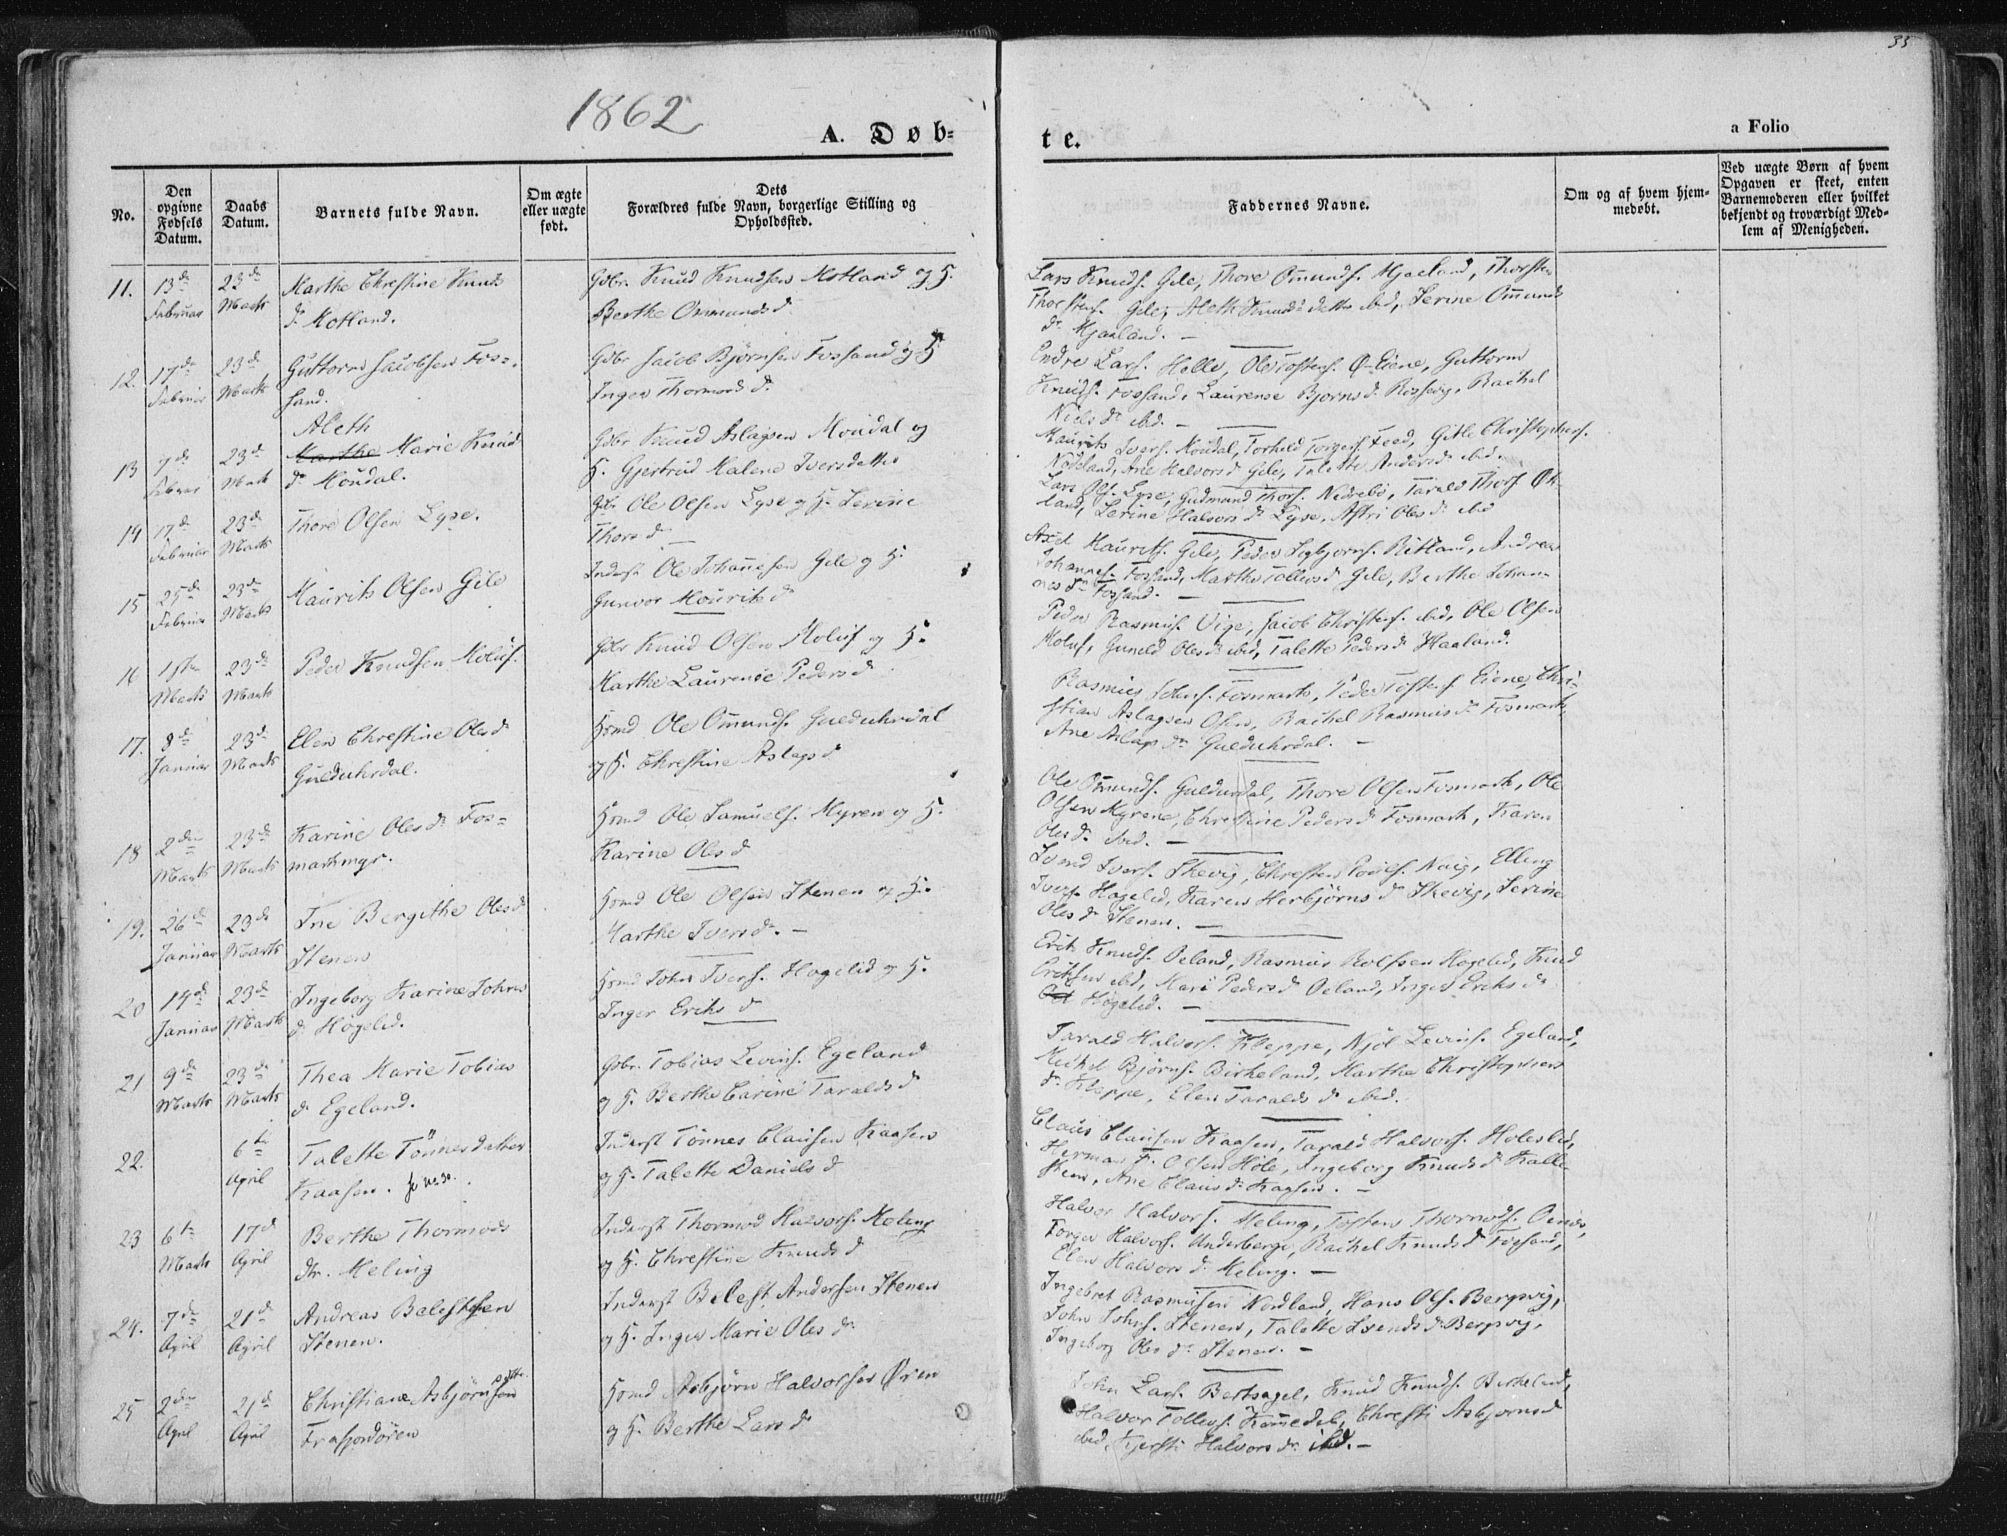 1862
A. Døb-
te.
a Folio
35
No.
Den opgivne Fødsels Datum.
Daabs Datum.
Barnets fulde Navn.
Om ægte eller uægte født.
Dets Forældres fulde Navn, borgerlige Stilling og Opholdssted.
Faddernes Navne.
Om og af hvem hjem-medøbt.
Ved uægte Børn af hvem Opgaven er skeet, enten Barnemoderen eller hvilket bekjendt og troværdigt Med-lem af Menigheden.
11. 13d Februar 23d Marts Marthe Christine Knuds
d. Motland.
Gdbr. Knud Knudsen Motland og H.
Berthe Ommundsd
Lars Knuds. Gile, Thore Omunds. Mjaeland, Thorsten
Thorstens. Gile, Aleth Knudsdatter ibid, Serine Omunds
dr Mjaaland. —
12. 17de Februar 23d Marts Guttorm Jacobsen Fos-
sand.
Gdbr Jacob Bjørnsen Fossand og H
Inger Thormods d.
Endre Lars. Helle, Ole Tostens. Ø-Eiene, Guttorm
Knuds. Fossand, Laurense Bjørns d. Rossevig, Rachel
Niels dr ibd. —
13 7d Februar 23d Marts Aleth
Marthe Marie Knud
dr Moudal.
Gdbr Knud Aslagsen Moudal og
H. Gjertrud Malene Iversdatter
Maurits Ivers. Moudal, Torkild Torgers. Feed, Gitle Christophers.
Nodeland, Ane Halvorsd Gile, Talette Andersd. ibid.
14 17d Februar 23d Marts Thore Olsen Lyse.
Gbr. Ole Olsen Lyse og H. Serine
Thorsd —
Lars Ols. Lyse, Gudmund Thors. Nedrebø, Tarald Thors Øk-
land, Serine Halvors dr Lyse, Astri Olesd. ibd
15 25d Februar 23d Marts Maurits Olsen Gile
Inderst Ole Johannesen Gile og H.
Gunvor Mouritsd
Axel Maurits. Gile, Peder Sigbjørns. Ritland, Andreas
Johannes. Fossand, Marthe Tollevsd Gile, Berthe Johan-
nesdr Fossand. —
16 1ste Marts 23d Marts Peder Knudsen Moluf.
Gdbr Knud Olsen Moluf og H.
Marthe Laurense Pedersd
Peder Rasmus. Vige, Jacob Christens. ibd, Ole Olsen
Moluf, Guneld Olesdr ibid, Talette Pedersd Haaland.
17. 8d Januar 23d Marts Elen Christine Olesd
Gulduhrdal.
Hsmd Ole Omunds. Gulduhrdal
og H. Christine Aslagsd
Rasmus Johns. Fosmark, Peder Tostens. Eiene, Chri-
stian Aslagsen, Rachel Rasmus dr Fosmark,
Ane Aslags dr Gulduhrdal. —
18 2den Marts 23d Marts Karine Olesdr Fos-
markmyr.
Hsmd Ole Samuels. Myren og H.
Karine Olesd
Ole Omunds. Guldurdal, Thore Olsen Fosmark, Ole
Olsen Myrene, Christine Pedersd Fosmark, Karen
Oles dr ibid. —
19. 26d Januar 23d Marts Tne Bergithe Olesd
Stenen
Hsmd Ole Olsen Stenen og H.
Marthe Iversdr. —
Svend Ivers. Skevig, Christen Povels. Naig, Elling
Ivers. Hogelid, Karen Herbjørns dr Skevig, Serine
Olesdr Stenen. —
20 19d Januar 23d Marts Ingeborg Karine Johns
dr Høgelid.
Hsmd John Ivers. Høgelid og H.
Inger Eriks d
Erik Knuds. Oeland, Rasmus Rolfsen Hogelid, Knud
Eriksen ibd, Mari Pedersd Oeland, Inger Eriks dr
Høgelid. —
21 9de Marts 23de Marts Thea Marie Tobias
dr Egeland.
Gdbr. Tobias Levins. Egeland
og H. Berthe Carine Taraldsd
Tarald Halvors. Kleppe, Njøl Levins. Egeland,
Mickel Bjørns. Birkeland, Marthe Christophers
dr Kleppe, Elen Taralds dr ibid.
22. 6te April Talette Tönnesdatter
Kaasen.
Inderst Tönnes Clausen Kaasen
og H. Talette Daniels d
Claus Clausen Kaasen, Tarald Halvors. Holeslid,
Herman F. Olsen Hole, Ingeborg Knuds dr Kalle-
sten, Ane Claus dr Kaasen. —
23 6te Marts 17d April Berthe Thormods
dtr. Meling
Inderst Thormod Halvors. Meling
og H. Christine Knudsd
Halvor Halvors. Meling, Tosten Thormods. Oenes,
Torger Halvors. Underberge, Rachel Knudsd Fossand,
Elen Halvors dr Meling. —
24. 7de April 21d April Andreas Balestsen
Stenen.
Inderst Belest Andersen Stenen
og H. Inger Marie Oles dr
Ingebret Rasmusen Nordland, Hans Ols. Bergevig,
John Johns. Stenen, Talette Svends dr Bergevig,
Ingeborg Oles dr Stenen. —
25 2den April 21d April Christiane Asbjørnsdtr.
Frafjordøren
Hsmd Asbjørn Halvorsen Øren
og H. Berthe Lars dr
John Lars. Bertsagel, Knud Knuds. Birkelid,
Halvor Tollevs. Kommedal, Christi Asbjørnsd
ibid, Kjersti Halvors dr ibd. —